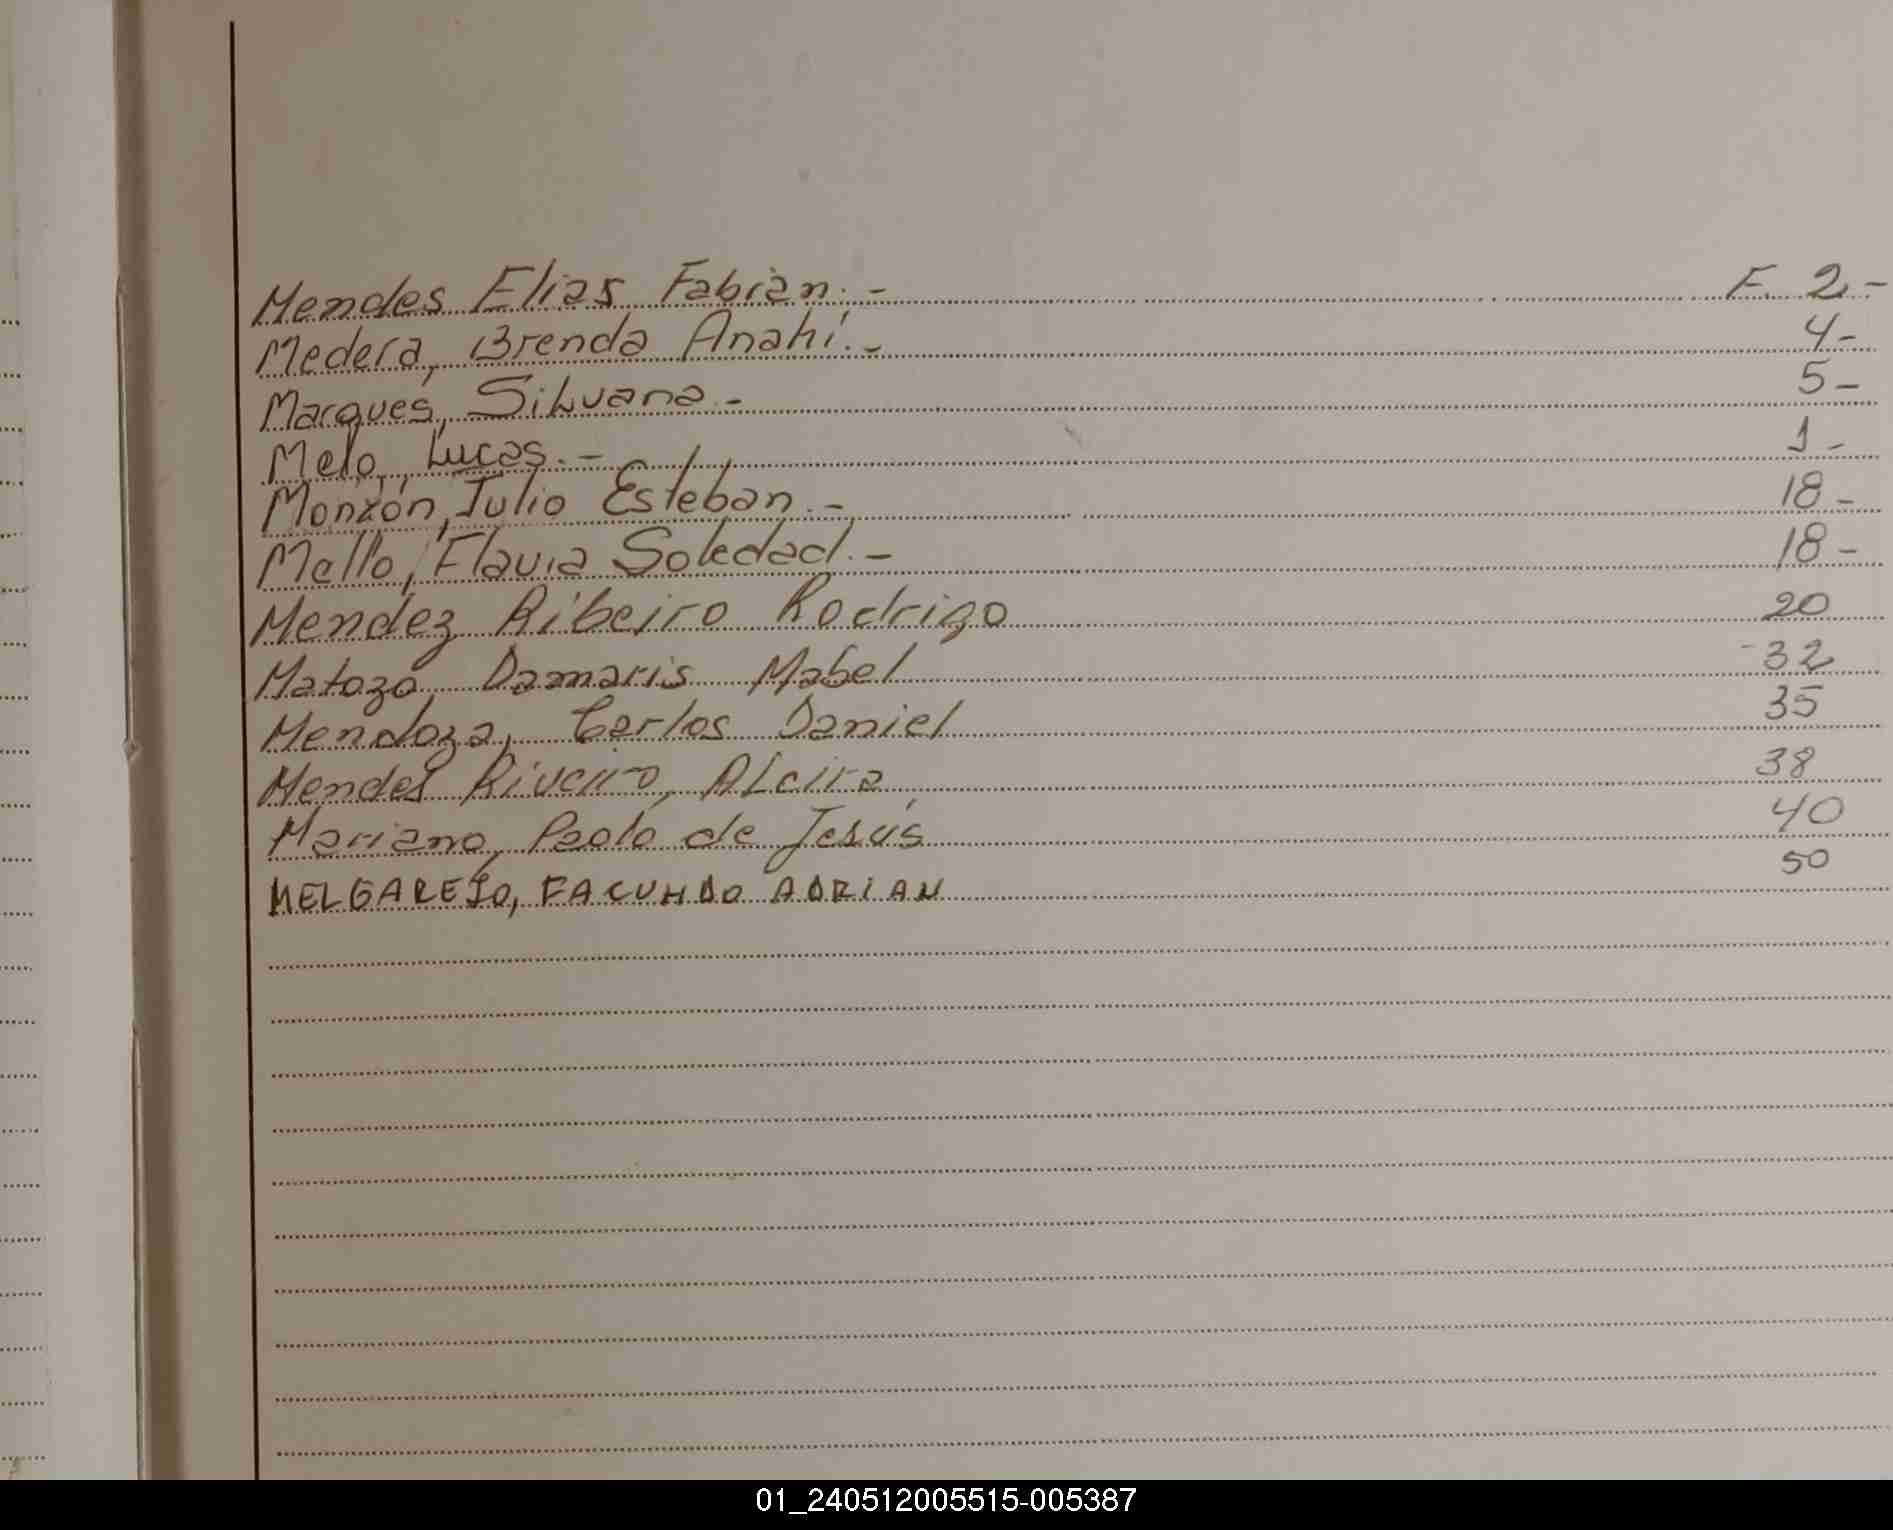 Mendes Elias Fabian.- F. 2-
Medera, Brenda Anahí.- 4-
Marques, Silvana.- 5-
Melo, Lucas.- 1-
Monzón, Julio Esteban.- 18-
Mello, Flavia Soledad.- 18-
Mendez Ribeiro Rodrigo 20
Matozo Damaris Mabel -32
Mendoza, Carlos Daniel 35
Mendes Riveiro, Alcira 38
Mariano, Paolo de Jesús 40
MELGAREJO, FACUNDO ADRIAN 50
01_240512005515-005387